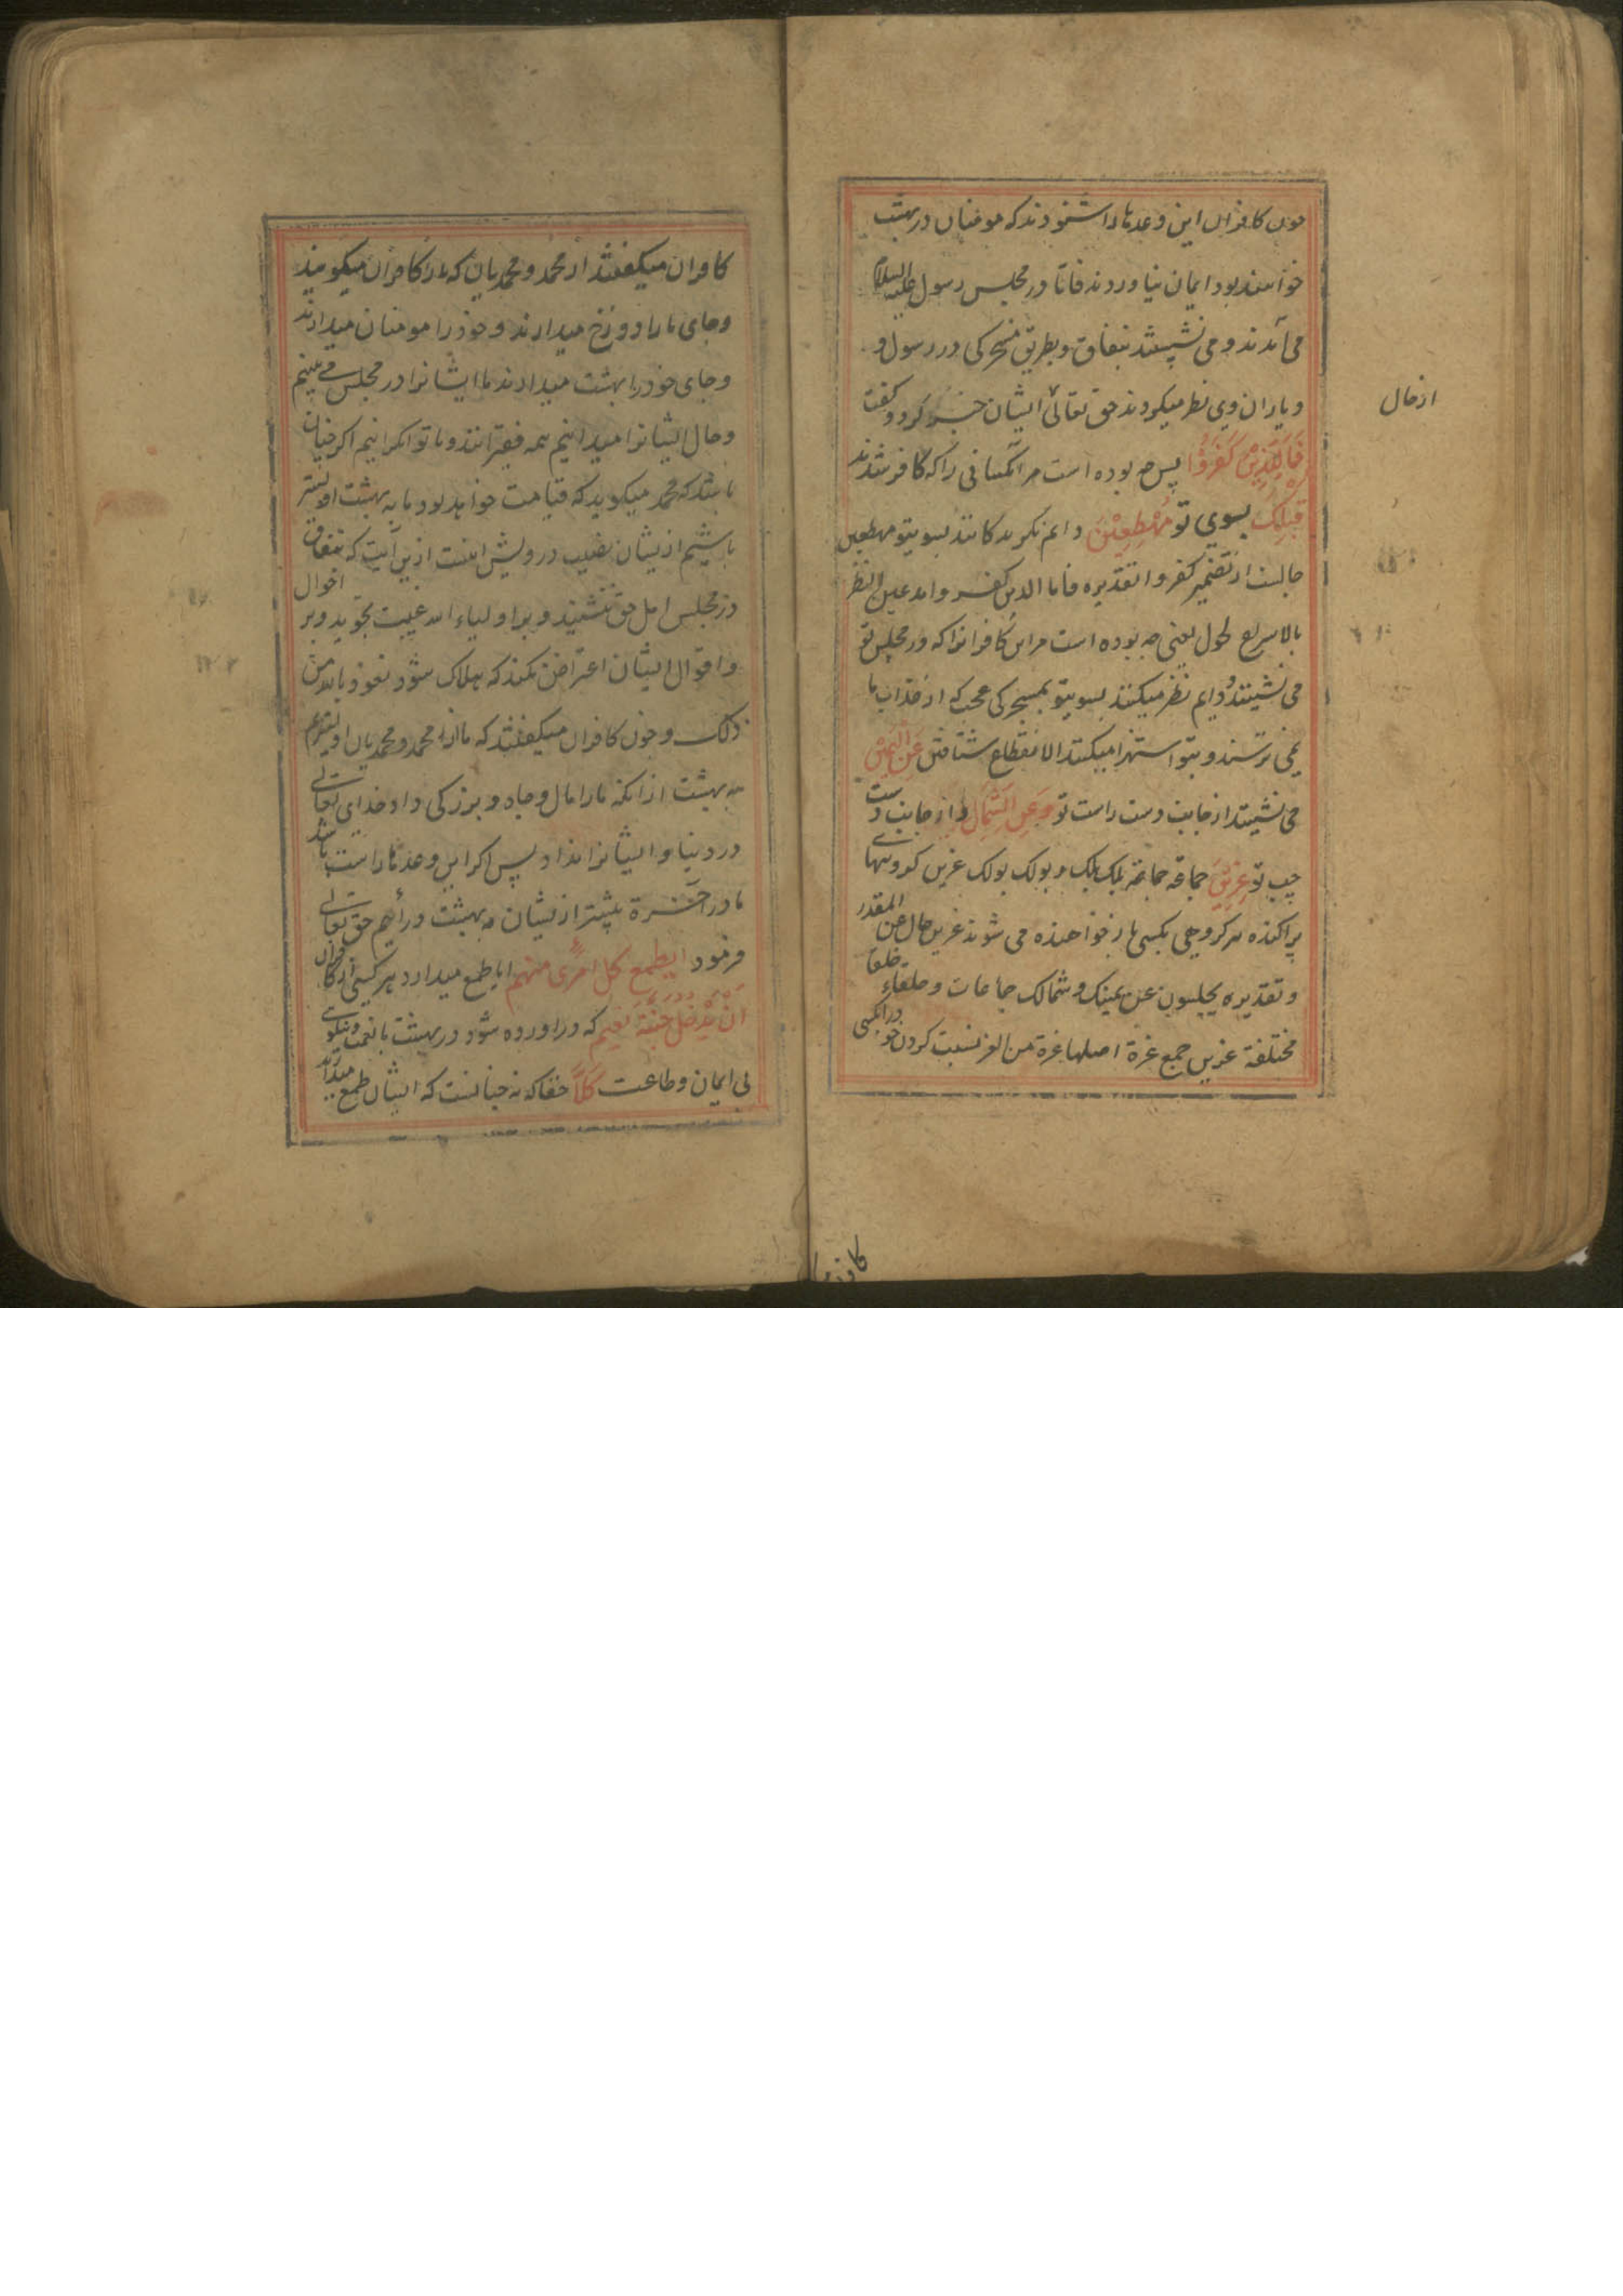 چون کافران این وعدها را شنودند که مومنان در بهشت
خواهند بود ایمان نیاوردند فاما در مجلس رسول علیه السلام
می آمدند و می نشستند بنفاق و بطریق مسخرکی در رسول و
و یاران وی نظر میکردند حق تعالی ایشان خبر کرد و کفت
از حال
فَمَالِ الَّذِینَ کَفَرُوا پس چه بوده است مر آنکسانی را که کافر شدند
قِبَلَکَ بسوی تو مُهْطِعِینَ دایم نکرندکانند بسویتو مهطعین
حالست از ضمیر کفروا تقدیره فما الذین کفروا مدعین النظر
بالاسراع لحول یعنی چه بوده است مر این کافرانرا که در مجلس تو
می نشینند و دایم نظر میکنند بسویتو بمسخرکی عجب که از عذاب ما
نمی ترسند و بتو استهزا میکنند الاهطاع شتافتن عَنِ الْیَمِینِ
می نشینند از جانب دست راست تو وَ عَنِ الشِّمَالِ و از جانب دست
چپ تو عِزِینَ جماعة جماعة بلک بلک و بولک بولک عزین کروههای
پراکنده هر کروهی بکسی باز خواهنده می شوند عزین حال عن المقدر
و تقدیره یجلسون عن یمینک و شمالک جماعات و حلقاء خلقا
مختلفة عزین جمع عزة اصلها عزة من العز نسبت کردن خود را بکسی
کافران میکفتند از محمد و محمدیان که ما را کافران میکویند
و جای ما را دوزخ میدارند و خود را مومنان میدارند
و جای خود را بهشت میدارند ما ایشانرا در مجلس می بینم
و حال ایشانرا میدانیم همه فقیرانند و ما توانکرانیم اکر چنان
باشد که محمد میکوید که قیامت خواهد بود ما به بهشت اولیتر
باشیم از یشان نصیب درویش اینست ازین آیت که بنفاق
در مجلس اهل حق ننشیند و بر اولیاء الله عیبت نجوید و بر احوال
و اقوال ایشان اعتراض نکند که هلاک شود نعوذ بالله من
ذلک و چون کافران میکفتند که ما از محمد و محمدیان اولیتریم
به بهشت از انکه ما را مال و جاه و بزرکی داد خدای تعالی
در دنیا و ایشانرا نداد پس اکر این وعدها راست باشد
ما در آخرة بیشتر از یشان به بهشت در آییم حق تعالی
فرمود ایطمع کل امرئ منهم ایا طمع میدارد هر کسی از کافران
اَنْ یُدْخَلَ جَنَّةَ نَعِیم که در اورده شود در بهشت با نعمت و نیکویی
بی ایمان و طاعت کَلَّا حقا که نه چنانست که ایشان طمع میدارند